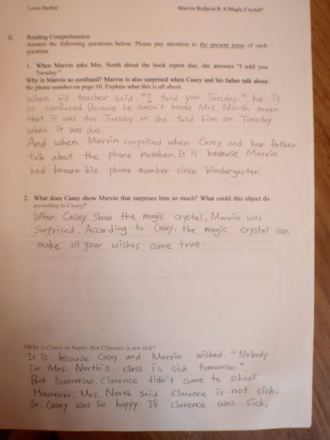 Louis Sachar
Marvin Redpost 8: A Magic Crystal?
II. Reading Comprehension
Answer the following questions below. Please pay attention to the present tense of each
question.
1. When Marvin asks Mrs. North about the book report due, she answers "I told you
Tuesday."
Why is Marvin so confused? Marvin is also surprised when Casey and his father talk about
the phone number on page 10. Explain what this is all about.
When his teacher said, "I told you Tuesday.", he is
so confused because he doesn't know Mrs. North mean
that it was due Tuesday or she told him on Tuesday
when it was due.
And when Marvin surprised when Casey and her father
talk about the phone number. It is because Marvin
had known his phone number since kindergarten.
2. What does Casey show Marvin that surprises him so much? What could this object do
according to Casey?
When Casey show the magic crystal, Marvin was
surprised. According to Casey, the magic crystal can
make all your wishes come true.
Why is Casey so happy that Clarence is not sick?
It is because Casey and Marvin wished "Nobody
in Mrs. North's class is sick tomorrow."
But tomorrow, Clarence didn't come to school.
However, Mrs. North said Clarence is not sick.
So Casey was so happy If Clarence was sick,